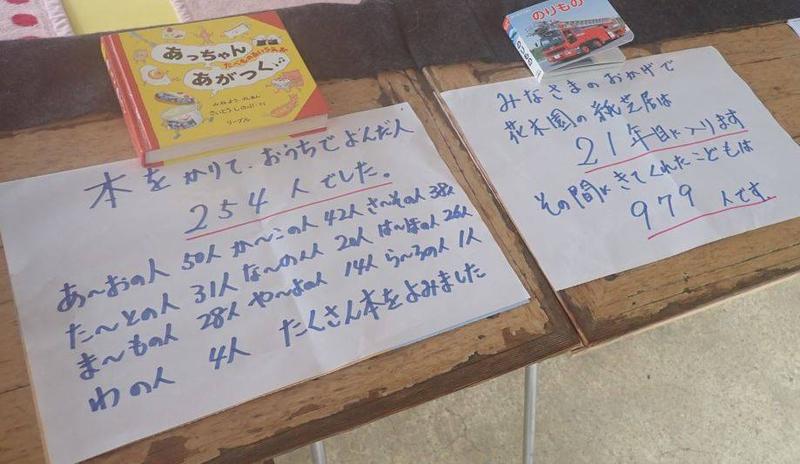 あっちゃん
たべものあいうえお
あがつく
みねよう げんあん
さいとう しのぶ さく
リーブル
のりもの
本をかりて、おうちでよんだ人
254人でした。
あ〜おの人 50人 か〜この人 42人 さ〜その人 38人
た〜との人 31人 な〜の人 20人 は〜ほの人 26人
ま〜もの人 28人 や〜よの人 14人 ら〜ろの人 1人
わの人 4人 たくさん本をよみました
みなさまのおかげで
花木園の紙芝居は
21年目に入ります
その間にきてくれたこどもは
979人です。